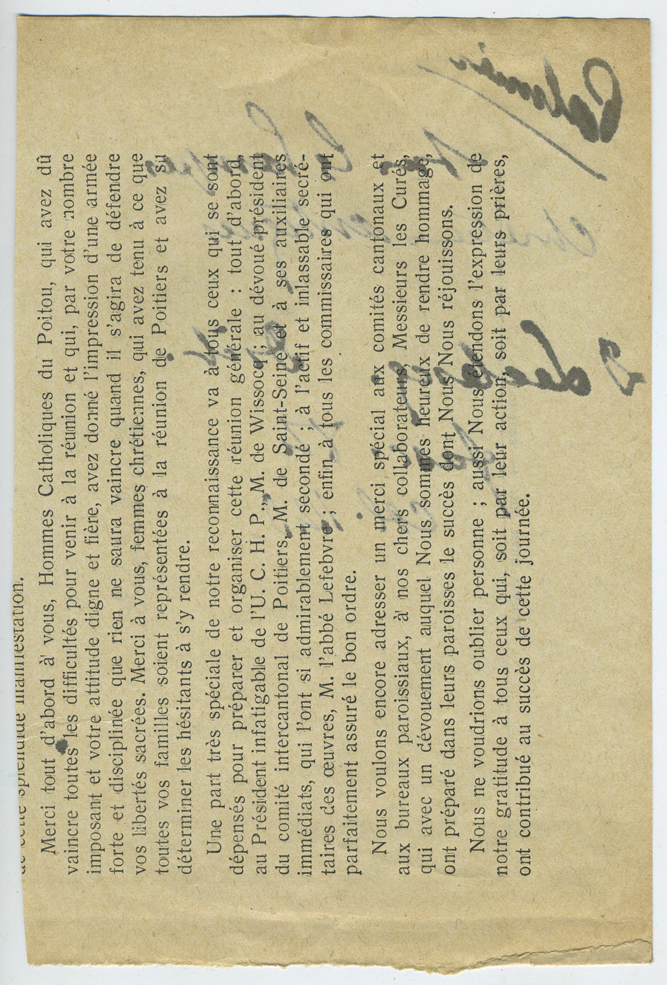 de cette splendide manifestation.
Merci tout d'abord à vous, Hommes Catholiques du Poitou, qui avez dû
vaincre toutes les difficultés pour venir à la réunion et qui, par votre nombre
imposant et votre attitude digne et fière, avez donné l'impression d'une armée
forte et disciplinée que rien ne saura vaincre quand il s'agira de défendre
vos libertés sacrées. Merci à vous, femmes chrétiennes, qui avez tenu à ce que
toutes vos familles soient représentées à la réunion de Poitiers et avez su
déterminer les hésitants à s'y rendre.
Une part très spéciale de notre reconnaissance va à tous ceux qui se sont
dépensés pour préparer et organiser cette réunion générale : tout d'abord,
au Président infatigable de l'U. C. H. P., M. de Wissocq ; au dévoué président
du comité intercantonal de Poitiers, M. de Saint-Seine et à ses auxiliaires
immédiats, qui l'ont si admirablement secondé ; à l'actif et inlassable secré-
taires des œuvres, M. l'abbé Lefebvre ; enfin à tous les commissaires qui ont
parfaitement assuré le bon ordre.
Nous voulons encore adresser un merci spécial aux comités cantonaux et
aux bureaux paroissiaux, à nos chers collaborateurs, Messieurs les Curés,
qui avec un dévouement auquel Nous sommes heureux de rendre hommage,
ont préparé dans leurs paroisses le succès dont Nous Nous réjouissons.
Nous ne voudrions oublier personne ; aussi Nous étendons l'expression de
notre gratitude à tous ceux qui, soit par leur action, soit par leurs prières,
ont contribué au succès de cette journée.